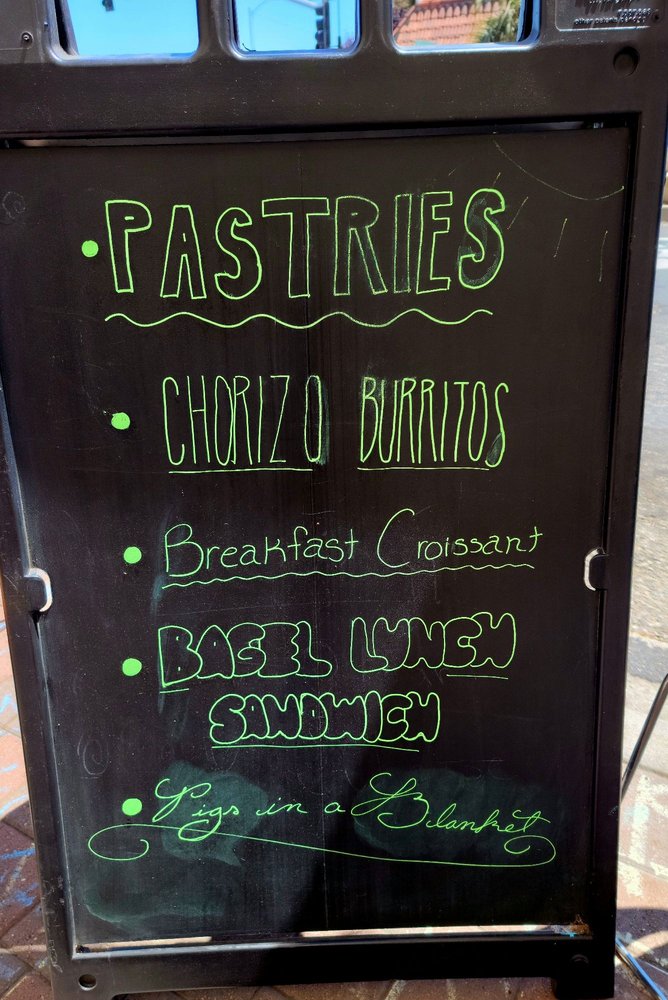 • PASTRIES
• CHORIZO BURRITOS
• Breakfast Croissant
• BAGEL LUNCH
SANDWICH
• Pigs in a Blanket